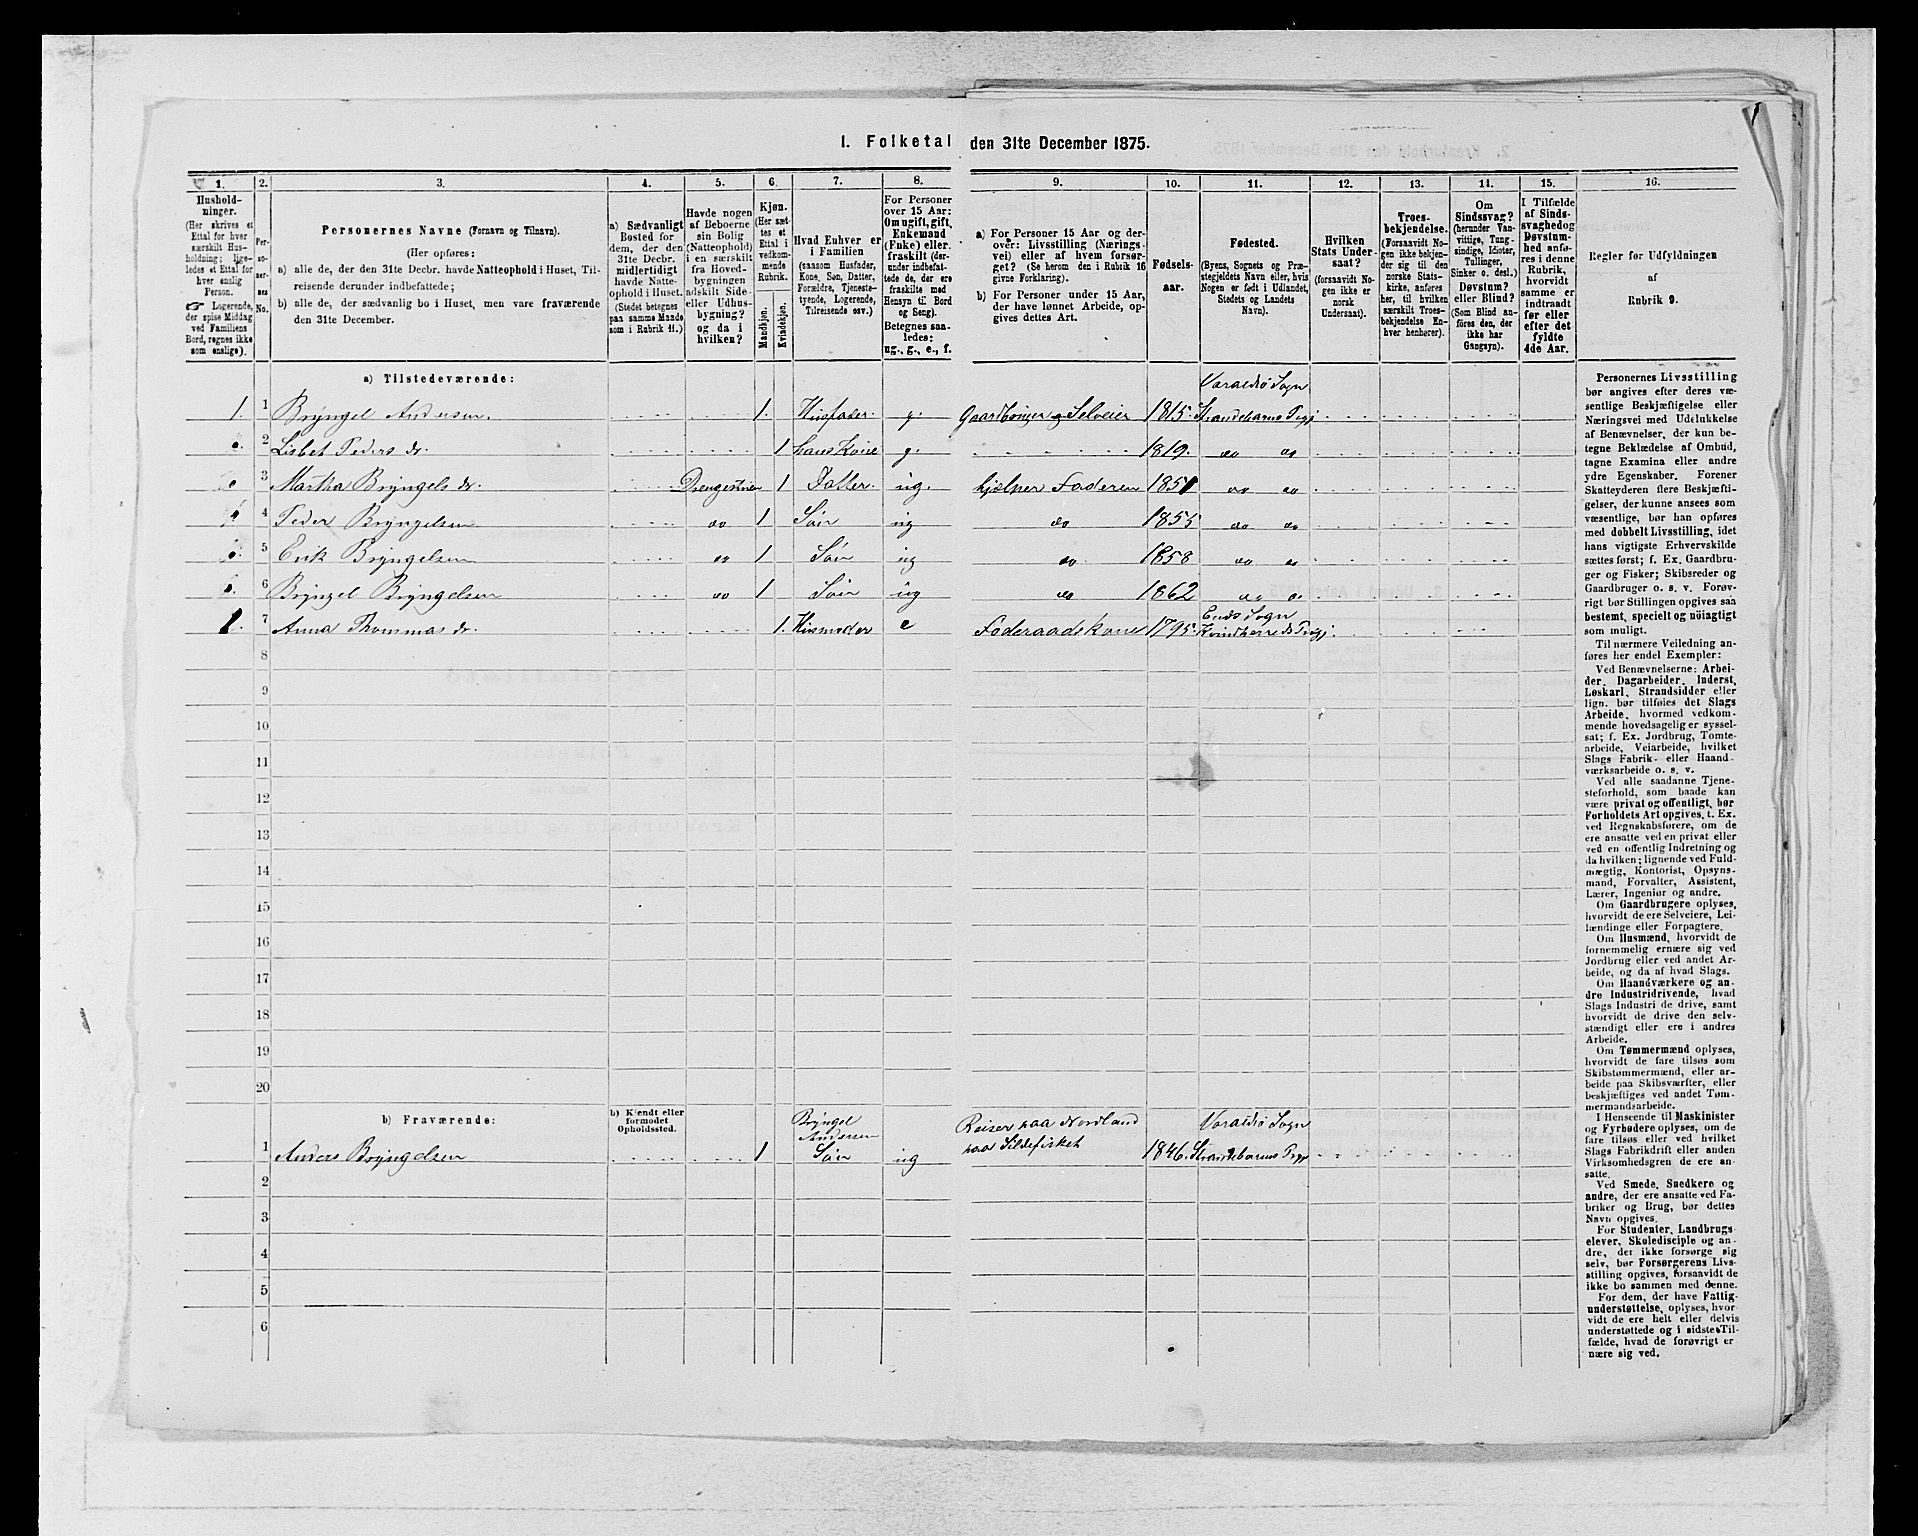 1. Folketal den 31te December 1875.
1.
2.
3.
4.
5.
6.
7.
8.
9.
10.
11.
12.
13.
14.
15.
16.
Hushold-
ninger.
(Her skrives et
Ettal for hver
særskilt Hus-
holdning; lige-
ledes et Ettal for
hver enslig
Person.
☞ Logerende,
der spise Middag
ved Familiens
Bord, regnes ikke
som enslige).
Per-
so-
ner-
nes
No.
Personernes Navne (Fornavn og Tilnavn).
(Her opføres:
a) alle de, der den 31te Decbr. havde Natteophold i Huset, Til-
reisende derunder indbefattede;
b) alle de, der sædvanlig bo i Huset, men vare fraværende
den 31te December.
a) Sædvanligt
Bosted for
dem, der den
31te Decbr.
midlertidigt
havde Natte-
ophold i Huset.
(Stedet betegnes
paa samme Maade
som i Rubrik 11.)
Havde nogen
af Beboerne
sin Bolig
(Natteophold)
i en særskilt
fra Hoved-
bygningen
adskilt Side-
eller Udhus-
bygning?
og da i
hvilken?
Kjøn.
(Her sæt-
tes et
Ettal i
vedkom-
mende
Rubrik.
Mandkjøn.
Kvindekjøn.
Hvad Enhver er
i Familien
(saasom Husfader,
Kone, Søn, Datter,
Forældre, Tjeneste-
tyende, Logerende,
Tilreisende osv.)
For Personer
over 15 Aar:
Om ugift, gift,
Enkemand
(Enke) eller
fraskilt (der-
under indbefat-
tede de, der ere
fraskilte med
Hensyn til Bord
og Seng).
Betegnes saa-
ledes:
ug., g., e., f.
a) For Personer 15 Aar og der-
over: Livsstilling (Nærings-
vei) eller af hvem forsør-
get? (Se herom den i Rubrik 16
givne Forklaring).
b) For Personer under 15 Aar,
der have lønnet Arbeide, op-
gives dettes Art.
Fødsels-
aar.
Fødested.
(Byens, Sognets og Præ-
stegjeldets Navn eller, hvis
Nogen er født i Udlandet,
Stedets og Landets
Navn).
Hvilken
Stats Under-
saat?
(forsaavidt No-
gen ikke er
norsk
Undersaat).
Troes-
bekjendelse.
(Forsaavidt No-
gen ikke bekjen-
der sig til den
norske Stats-
kirke, anføres
her, til hvilken
særskilt Troes-
bekjendelse En-
hver henhører).
Om
Sindssvag?
(herunder Van-
vittige, Tung-
sindige, Idioter,
Tullinger,
Sinker o. desl.)
Døvstum?
eller Blind?
(Som Blind an-
føres den, der
ikke har
Gangsyn).
I Tilfælde
af Sinds-
svaghed og
Døvstum-
hed anfø-
res i denne
Rubrik,
hvorvidt
samme er
indtraadt
før eller
efter det
fyldte
4de Aar.
Regler for Udfyldningen
af
Rubrik 9.
a) Tilstedeværende:
Varaldsö Sogn
1. 1 Bryngel Andersen. 1. Husfader. g. Gaardbruger og Selveier 1815 Strandebarms Prgj
2 Lisbet Peders dr. 1 hans Kone g. 1819. do do
3 Martha Bryngels dr. Drengestuen 1 Datter. ug. hjælper Faderen 1851 do do
4 Peder Bryngelsen do 1 Sön ug do 1855 do do
5 Erik Bryngelsen do 1 Sön ug do 1858 do do
6 Bryngel Bryngelsen do 1 Sön ug do 1862 do do
Enes Sogn
1. 7 Anna Thommas dr. 1. Husmoder e Föderaadskone 1795. Kvindherreds Prgj.
8
9
10
11
12
13
14
15
16
17
18
19
20
b) Fraværende:
b) Kjendt eller
formodet
Opholdssted.
Bryngel
Andersen
Reiser paa Nordland
paa Sildefisket
Varaldsö Sogn
1 Anders Bryngelsen 1 Sön ug 1846. Strandebarms Prgj
2
3
4
5
6
Personernes Livsstilling
bør angives efter deres væ-
sentlige Beskjæftigelse eller
Næringsvei med Udelukkelse
af Benævnelser, der kun be-
tegne Beklædelse af Ombud,
tagne Examina eller andre
ydre Egenskaber. Forener
Skatteyderen flere Beskjæfti-
gelser, der kunne ansees som
væsentlige, bør han opføres
med dobbelt Livsstilling, idet
hans vigtigste Erhvervskilde
sættes først; f. Ex. Gaardbru-
ger og Fisker; Skibsreder og
Gaardbruger o. s. v. Forøv-
rigt bør Stillingen opgives saa
bestemt, specielt og nöiagtigt
som muligt.
Til nærmere Veiledning an-
føres her endel Exempler:
Ved Benævnelserne: Arbei-
der, Dagarbeider, Inderst,
Løskarl, Strandsidder eller
lign. bør tilføies det Slags
Arbeide, hvormed vedkom-
mende hovedsagelig er syssel-
sat; f. Ex. Jordbrug, Tomte-
arbeide, Veiarbeide, hvilket
Slags Fabrik- eller Haand-
værksarbeide o. s. v.
Ved alle saadanne Tjene-
steforhold, som baade kan
være privat og offentligt, bør
Forholdets Art opgives, t. Ex.
ved Regnskabsførere, om de
ere ansatte ved en privat eller
ved en offentlig Indretning og
da hvilken; lignende ved Fuld-
mægtig, Kontorist, Opsyns-
mand, Forvalter, Assistent,
Lærer, Ingeniør og andre.
Om Gaardbrugere oplyses,
hvorvidt de ere Selveiere, Lei-
lændinge eller Forpagtere.
Om Husmænd, hvorvidt de
fornemmelig ernære sig ved
Jordbrug eller ved andet Ar-
beide, og da af hvad Slags.
Om Haandværkere og an-
dre Industridrivende, hvad
Slags Industri de drive, samt
hvorvidt de drive den selv-
stændigt eller ere i andres
Arbeide.
Om Tømmermænd oplyses,
hvorvidt de fare tilsøs som
Skibstømmermænd, eller ar-
beide paa Skibsværfter, eller
beskjæftiges ved andet Tøm-
mermandsarbeide.
I Henseende til Maskinister
og Fyrbødere oplyses, om de
fare tilsøs eller ved hvilket
Slags Fabrikdrift eller anden
Virksomhedsgren de ere an-
satte.
Ved Smede, Snedkere og
andre, der ere ansatte ved Fa-
briker og Brug, bør dettes
Navn opgives.
For Studenter, Landbrugs-
elever, Skoledisciple og an-
dre, der ikke forsørge sig
selv, bør Forsørgerens Livs-
stilling opgives, forsaavidt de
ikke bo sammen med denne.
For dem, der have Fattig-
understøttelse, oplyses, hvor-
vidt de ere helt eller delvis
understøttede og i sidste Til-
fælde, hvad de forøvrigt er-
nære sig ved.